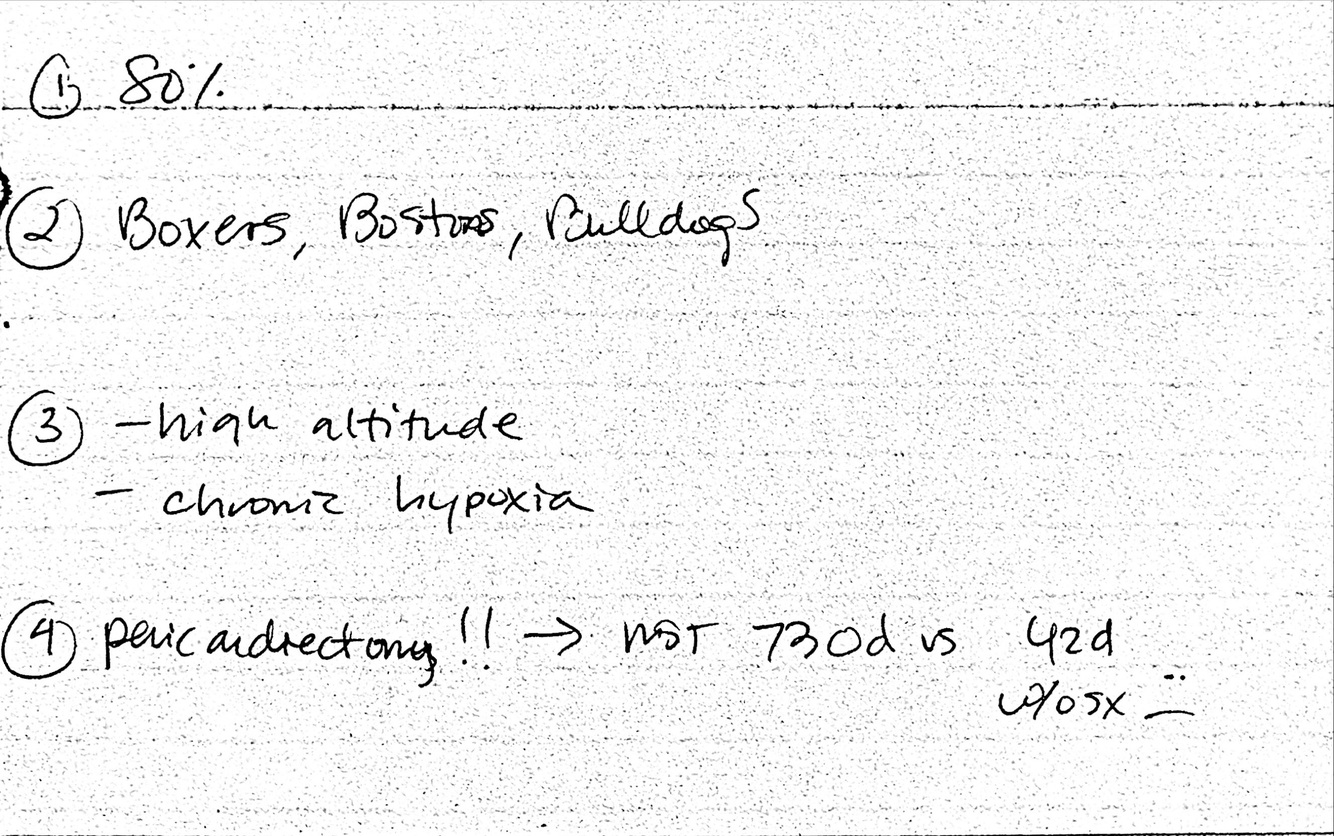 ① 80%
② Boxers, Bostons, Bulldogs
③ - high altitude
- chronic hypoxia
④ pericardectomy!! → MST 730d vs 42d
w/o sx